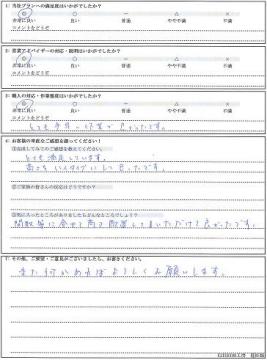 1) 当社プランへの満足度はいかがでしたか？
◎ ○ － △ ×
非常に良い 良い 普通 やや不満 不満
コメントをどうぞ
2) 営業アドバイザーの対応・説明はいかがでしたか？
◎ ○ － △ ×
非常に良い 良い 普通 やや不満 不満
コメントをどうぞ
3) 職人の対応・作業態度はいかがでしたか？
◎ ○ － △ ×
非常に良い 良い 普通 やや不満 不満
コメントをどうぞ
とても 作業で良かったです。
4) お客様の率直なご感想を綴ってください！
①完成してみてのご感想を教えてください。
とても満足しています。
高さも いして良かったです。
②ご家族の皆さんの反応はどうですか？
③気に入ったところがありましたらどんなところでしょう？
に合せて 配置してもらいただけて良かったです。
5) その他、ご要望・ご意見がございましたら、お書きください。
また何かあればよろしくお願いします。